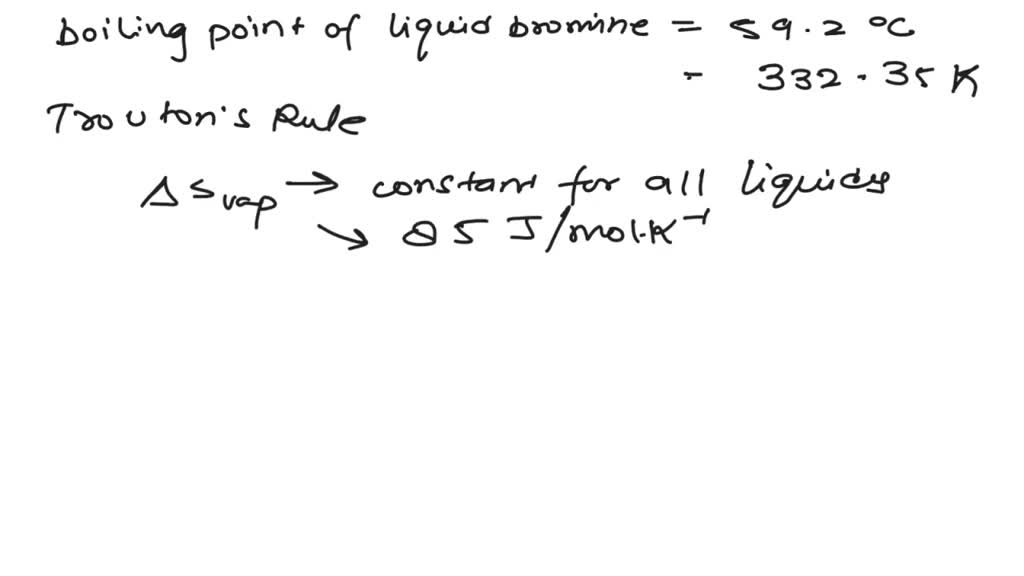 boiling point of liquid bromine = 59.2 °C
= 332.35 K
Trouton's Rule
ΔSvap → constant for all liquids
→ 85 J/mol.K⁻¹